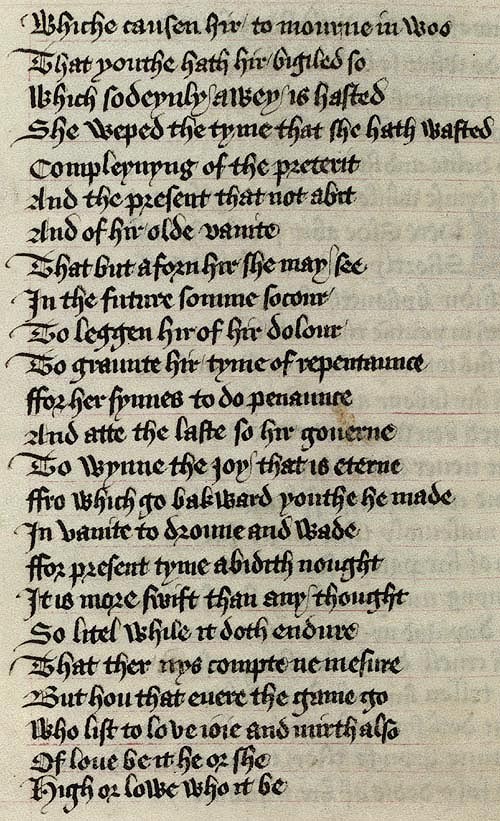 Whiche causen hir to mourne in woo
That youthe hath hir bigiled so
Which sodeynly awey is hasted
She weped the tyme that she hath wasted
Compleynyng of the preterit
And the present that not abit
And of hir olde vanite
That but aforn hir she may see
In the future somme socour
To leggen hir of hir dolour
To graunte hir tyme of repentaunce
ffor her synnes to do penaunce
And atte the laste so hir gouerne
To wynne the joy that is eterne
ffro which go bakward youthe he made
In vanite to droune and wade
ffor present tyme abidith nought
It is more swift than any thought
So litel while it doth endure
That ther nys compte ne mesure
But hou that euere the game go
Who list to love ioie and mirth also
Of loue be it he or she
High or lowe who it be